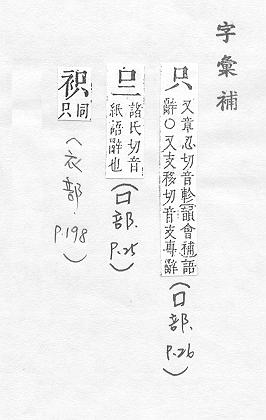 字彙補
只
又章忍切音軫韻會補語
辭○又支移切音支專辭
(口部.P.26)
諸氏切音
紙語辭也
(口部.P.25)
同
只
(衣部.P.198)